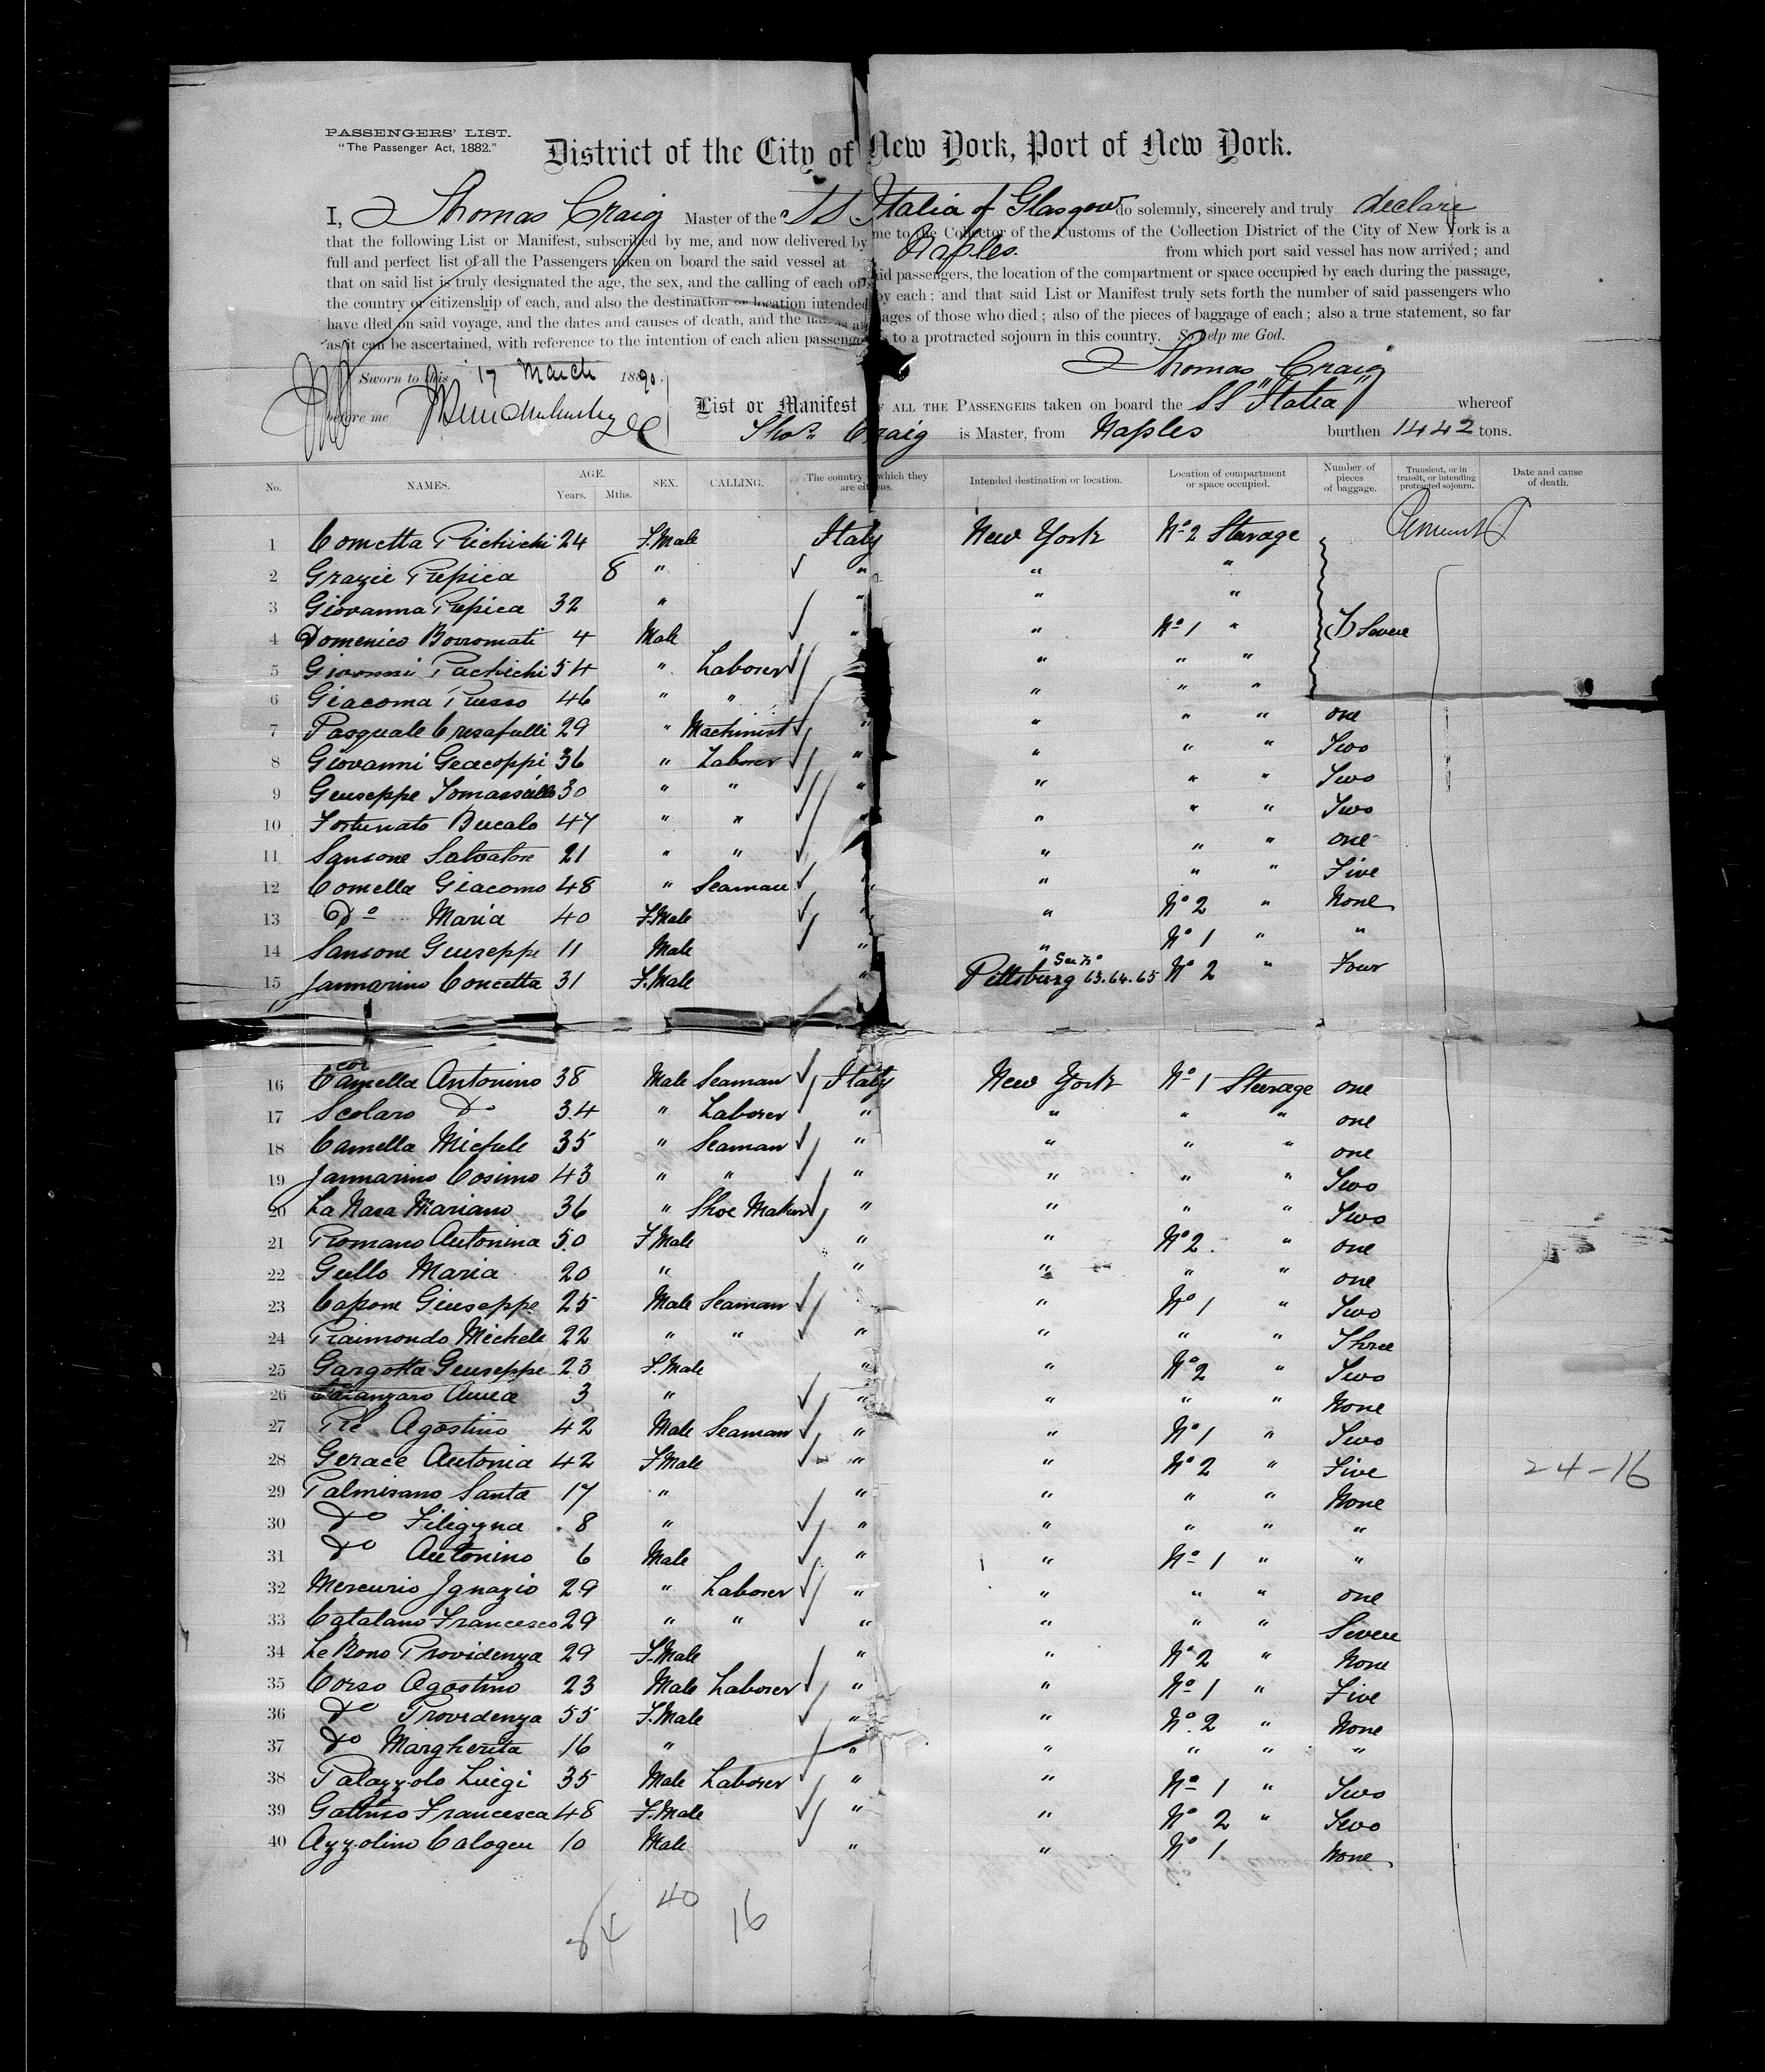 PASSENGERS' LIST.
"The Passenger Act, 1882."
District of the City of New York, Port of New York.
I, Thomas Craig Master of the SS Italia of Glasgow do solemnly, sincerely and truly declare
that the following List or Manifest, subscribed by me, and now delivered by me to the Collector of the Customs of the Collection District of the City of New York is a
full and perfect list of all the Passengers taken on board the said vessel at Naples. from which port said vessel has now arrived; and
that on said list is truly designated the age, the sex, and the calling of each of said passengers, the location of the compartment or space occupied by each during the passage,
the country or citizenship of each, and also the destination or location intended by each; and that said List or Manifest truly sets forth the number of said passengers who
have died on said voyage, and the dates and causes of death, and the names and ages of those who died; also of the pieces of baggage of each; also a true statement, so far
as it can be ascertained, with reference to the intention of each alien passenger as to a protracted sojourn in this country. So help me God.
Thomas Craig
Sworn to this 17 March 1890.
before me
List or Manifest OF ALL THE PASSENGERS taken on board the SS "Italia" whereof
Thos. Craig is Master, from Naples burthen 1442 tons.
No. NAMES. AGE. Years. Mths. SEX. CALLING. The country of which they are citizens. Intended destination or location. Location of compartment or space occupied. Number of pieces of baggage. Transient, or in transit, or intending protracted sojourn. Date and cause of death.
1 Cometta 24 F.Male Italy New York No 2 Steerage
2 Grazie Repica 8 " " " "
3 Giovanna Repica 32 " " " "
4 Domenico Borromati 4 Male " " No 1 " Seven
5 Giovanni 54 " Laborer " " "
6 Giacoma Russo 46 " " " " "
7 Pasquale Cresafulli 29 " Machinist " " " " one
8 Giovanni Geacoppi 36 " Laborer " " " " Two
9 Geuseppe 30 " " " " " " Two
10 Fortunato Bucalo 47 " " " " " " Two
11 Sansone Salvatore 21 " " " " " one
12 Comella Giacomo 48 " Seaman " " " " Five
13 Do Maria 40 F.Male " " No 2 " None
14 Sansone Giuseppe 11 Male " " No 1 " "
15 Jannarino Concetta 31 F.Male " Pittsburg See No 63.64.65 No 2 " Four
16 Camella Antonino 38 Male Seaman Italy New York No 1 Steerage one
17 Scolaro Do 34 " Laborer " " " " one
18 Camella Michele 35 " Seaman " " " " one
19 Jannarino Cosimo 43 " " " " " " Two
20 La Nasa Mariano 36 " Shoe Maker " " " " Two
21 Romano Antonina 50 F.Male " " No 2 " one
22 Gullo Maria 20 " " " " " one
23 Capone Giuseppe 25 Male Seaman " No 1 " Two
24 Raimondo Michele 22 " " " " " " Three
25 Gargotta Geuseppe 23 F.Male " " No 2 " Two
26 3 " " " " " None
27 Re Agostino 42 Male Seaman " " No 1 " Two
28 Gerace Antonia 42 F.Male " " No 2 " Five
24-16
29 Palmisano Santa 17 " " " " " None
30 Do 8 " " " " " "
31 Do Antonino 6 Male " " No 1 " "
32 Mercurio Ignazio 29 " Laborer " " " " one
33 Catalano Francesco 29 " " " " " " Seven
34 Lo Bono Providenza 29 F.Male " " No 2 " None
35 Corso Agostino 23 Male Laborer " " No 1 " Five
36 Do Providenza 55 F.Male " " No 2 " None
37 Do Margherita 16 " " " " " "
38 Palazzolo Luigi 35 Male Laborer " " No 1 " Two
39 Gattuso Francesca 48 F.Male " " No 2 " Two
40 Azzolino Calogeu 10 Male " " No 1 None
40
16